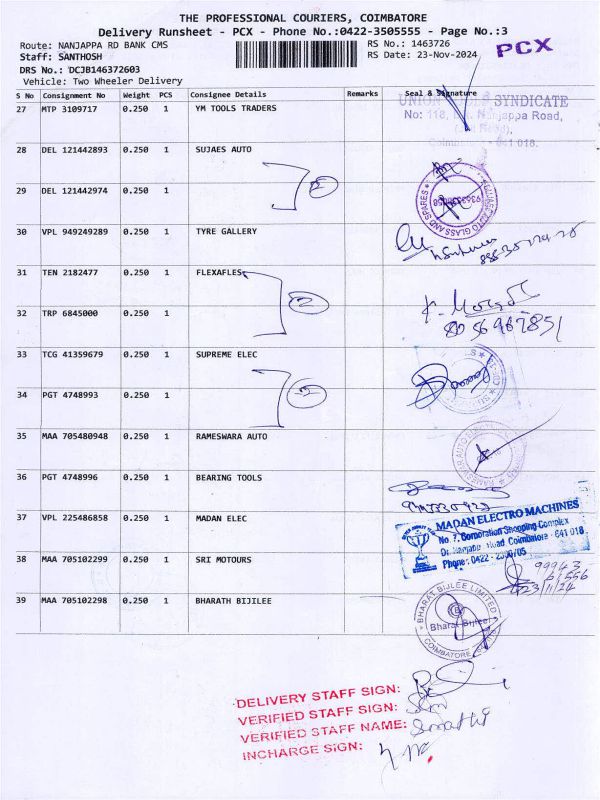 THE PROFESSIONAL COURIERS, COIMBATORE
Delivery Runsheet - PCX - Phone No.:0422-3505555 - Page No.:3
Route: NANJAPPA RD BANK CMS
RS No.: 1463726
PCX
Staff: SANTHOSH
RS Date: 23-Nov-2024
DRS No.: DCJB146372603
Vehicle: Two Wheeler Delivery
S No Consignment No Weight PCS Consignee Details Remarks Seal & Signature
27 MTP 3109717 0.250 1 YM TOOLS TRADERS
UNION SYNDICATE
No: 118, Nanjappa Road,
641 018.
28 DEL 121442893 0.250 1 SUJAES AUTO
2
29 DEL 121442974 0.250 1
GLASS AND SPARES
30 VPL 949249289 0.250 1 TYRE GALLERY
31 TEN 2182477 0.250 1 FLEXAFLES
2
32 TRP 6845000 0.250 1
8056967851
33 TCG 41359679 0.250 1 SUPREME ELEC
2
34 PGT 4748993 0.250 1
35 MAA 705480948 0.250 1 RAMESWARA AUTO
RAMESWARA AUTO
36 PGT 4748996 0.250 1 BEARING TOOLS
37 VPL 225486858 0.250 1 MADAN ELEC
MADAN ELECTRO MACHINES
No. 7, Corporation Shopping Complex
Dr. Nanjappa Road, Coimbatore - 641 018.
Phone: 0422 -
38 MAA 705102299 0.250 1 SRI MOTOURS
99943
61556
23/11/24
39 MAA 705102298 0.250 1 BHARATH BIJILEE
BHARAT BIJLEE LIMITED
Bharat Bijlee
COIMBATORE
DELIVERY STAFF SIGN:
VERIFIED STAFF SIGN:
VERIFIED STAFF NAME: Sumathi
INCHARGE SIGN: